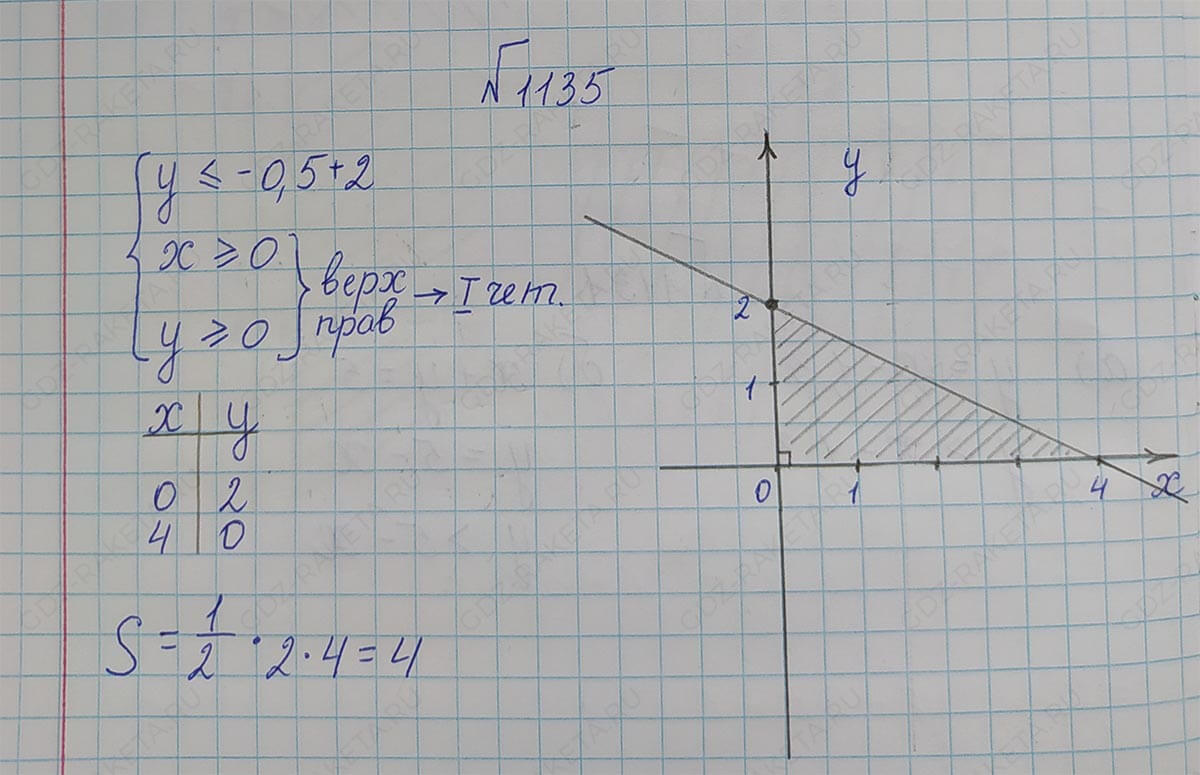 №1135
y ≤ -0,5+2
x ≥ 0
y ≥ 0
верх
прав → I чет.
x y
0 2
4 0
S = 1/2 · 2 · 4 = 4
y
2
1
0 1 4 x
GDZ-RAKETA.RU